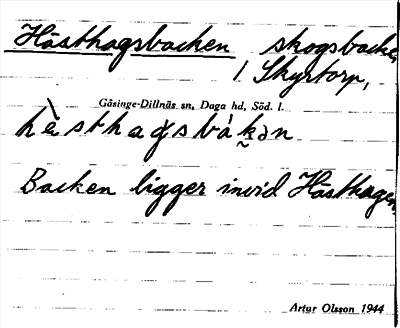 Hästhagsbacken skogsbacke
i Skyrtorp,
Gåsinge-Dillnäs sn, Daga hd, Söd. l.
hä̀sthagsbák̰ən
Backen ligger invid Hästhagen.
Artur Olsson 1944